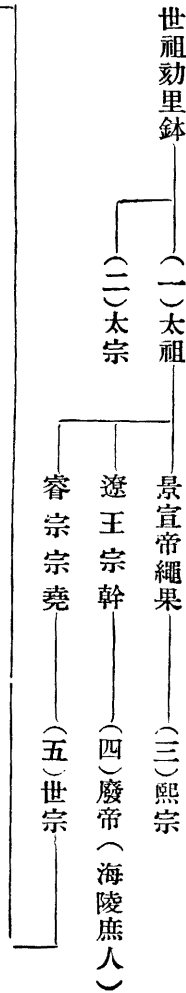 世祖劾里鉢
(一)太祖
(二)太宗
景宣帝繩果
遼王宗幹
睿宗宗堯
(三)熙宗
(四)廢帝(海陵庶人)
(五)世宗